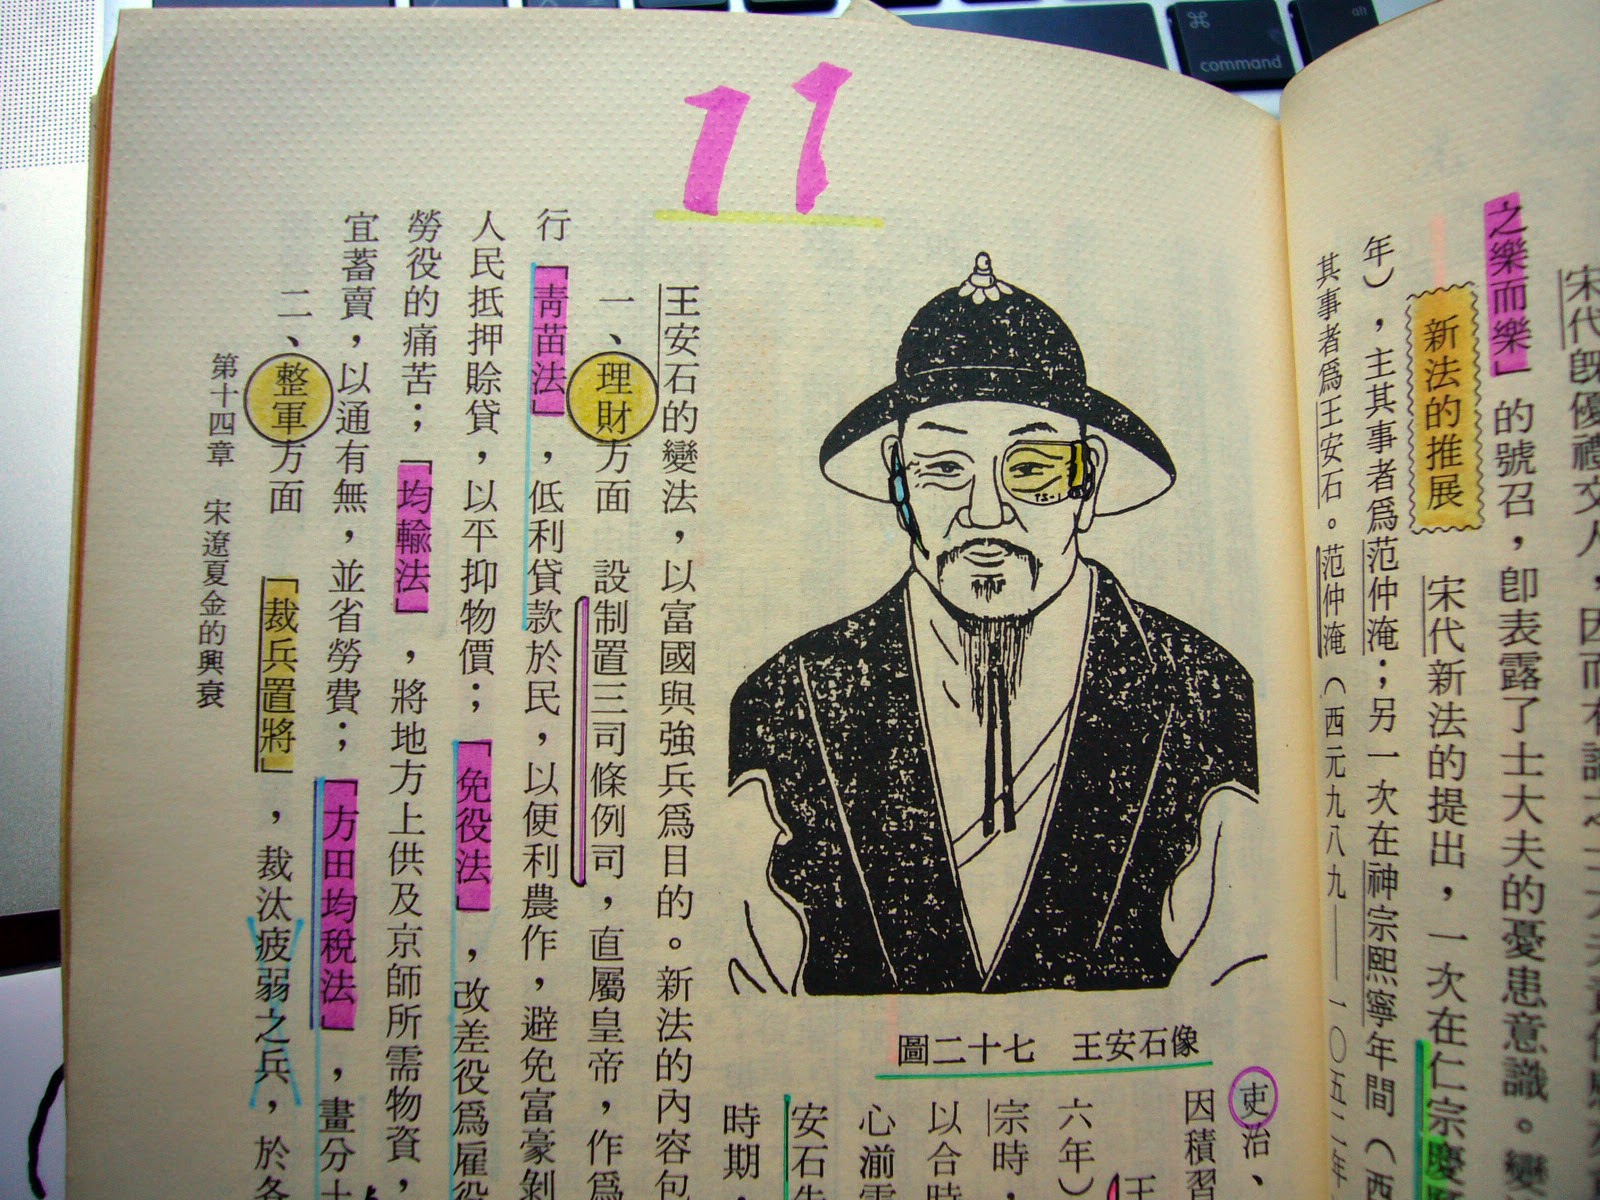 command
alt
宋代旣優禮文人，因而有
之樂而樂」的號召，卽表露了士大夫的憂患意識。變
新法的推展　宋代新法的提出，一次在仁宗慶
年），主其事者爲范仲淹；另一次在神宗熙寧年間（西
其事者爲王安石。范仲淹（西元九八九——一〇五二年
11
圖二十七　王安石像
吏治、
因積習
王
六年）
宗時，
以合時
心湔
安石
時期，
王安石的變法，以富國與強兵爲目的。新法的內容包
一、理財方面　設制置三司條例司，直屬皇帝，作爲
行「靑苗法」，低利貸款於民，以便利農作，避免富豪剝
人民抵押賒貸，以平抑物價；「免役法」，改差役爲雇役
勞役的痛苦；「均輸法」，將地方上供及京師所需物資，
宜蓄賣，以通有無，並省勞費；「方田均稅法」，畫分土
二、整軍方面　「裁兵置將」，裁汰疲弱之兵，於各
第十四章　宋遼夏金的興衰